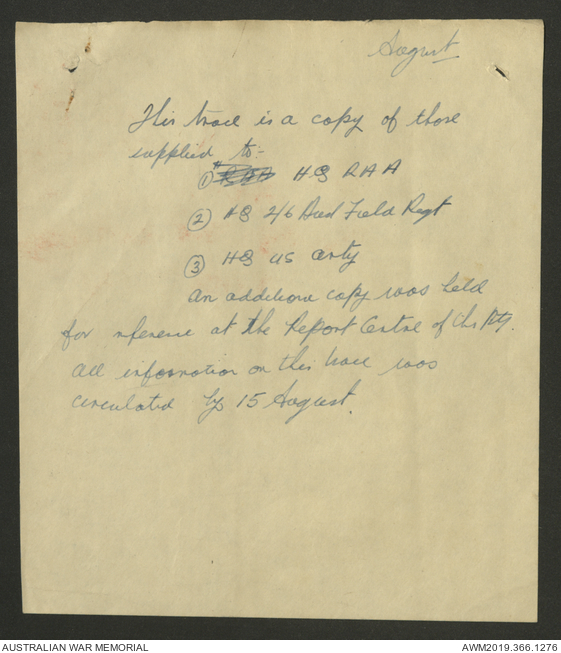 August
This trace is a copy of those
supplied to:-
① HQ RAA
② HQ 2/6 Aust Field Regt
③ HQ US arty
An additional copy was held
for reference at the Report Centre of this Bty.
All information on this trace was
circulated by 15 August.
AUSTRALIAN WAR MEMORIAL
AWM2019.366.1276